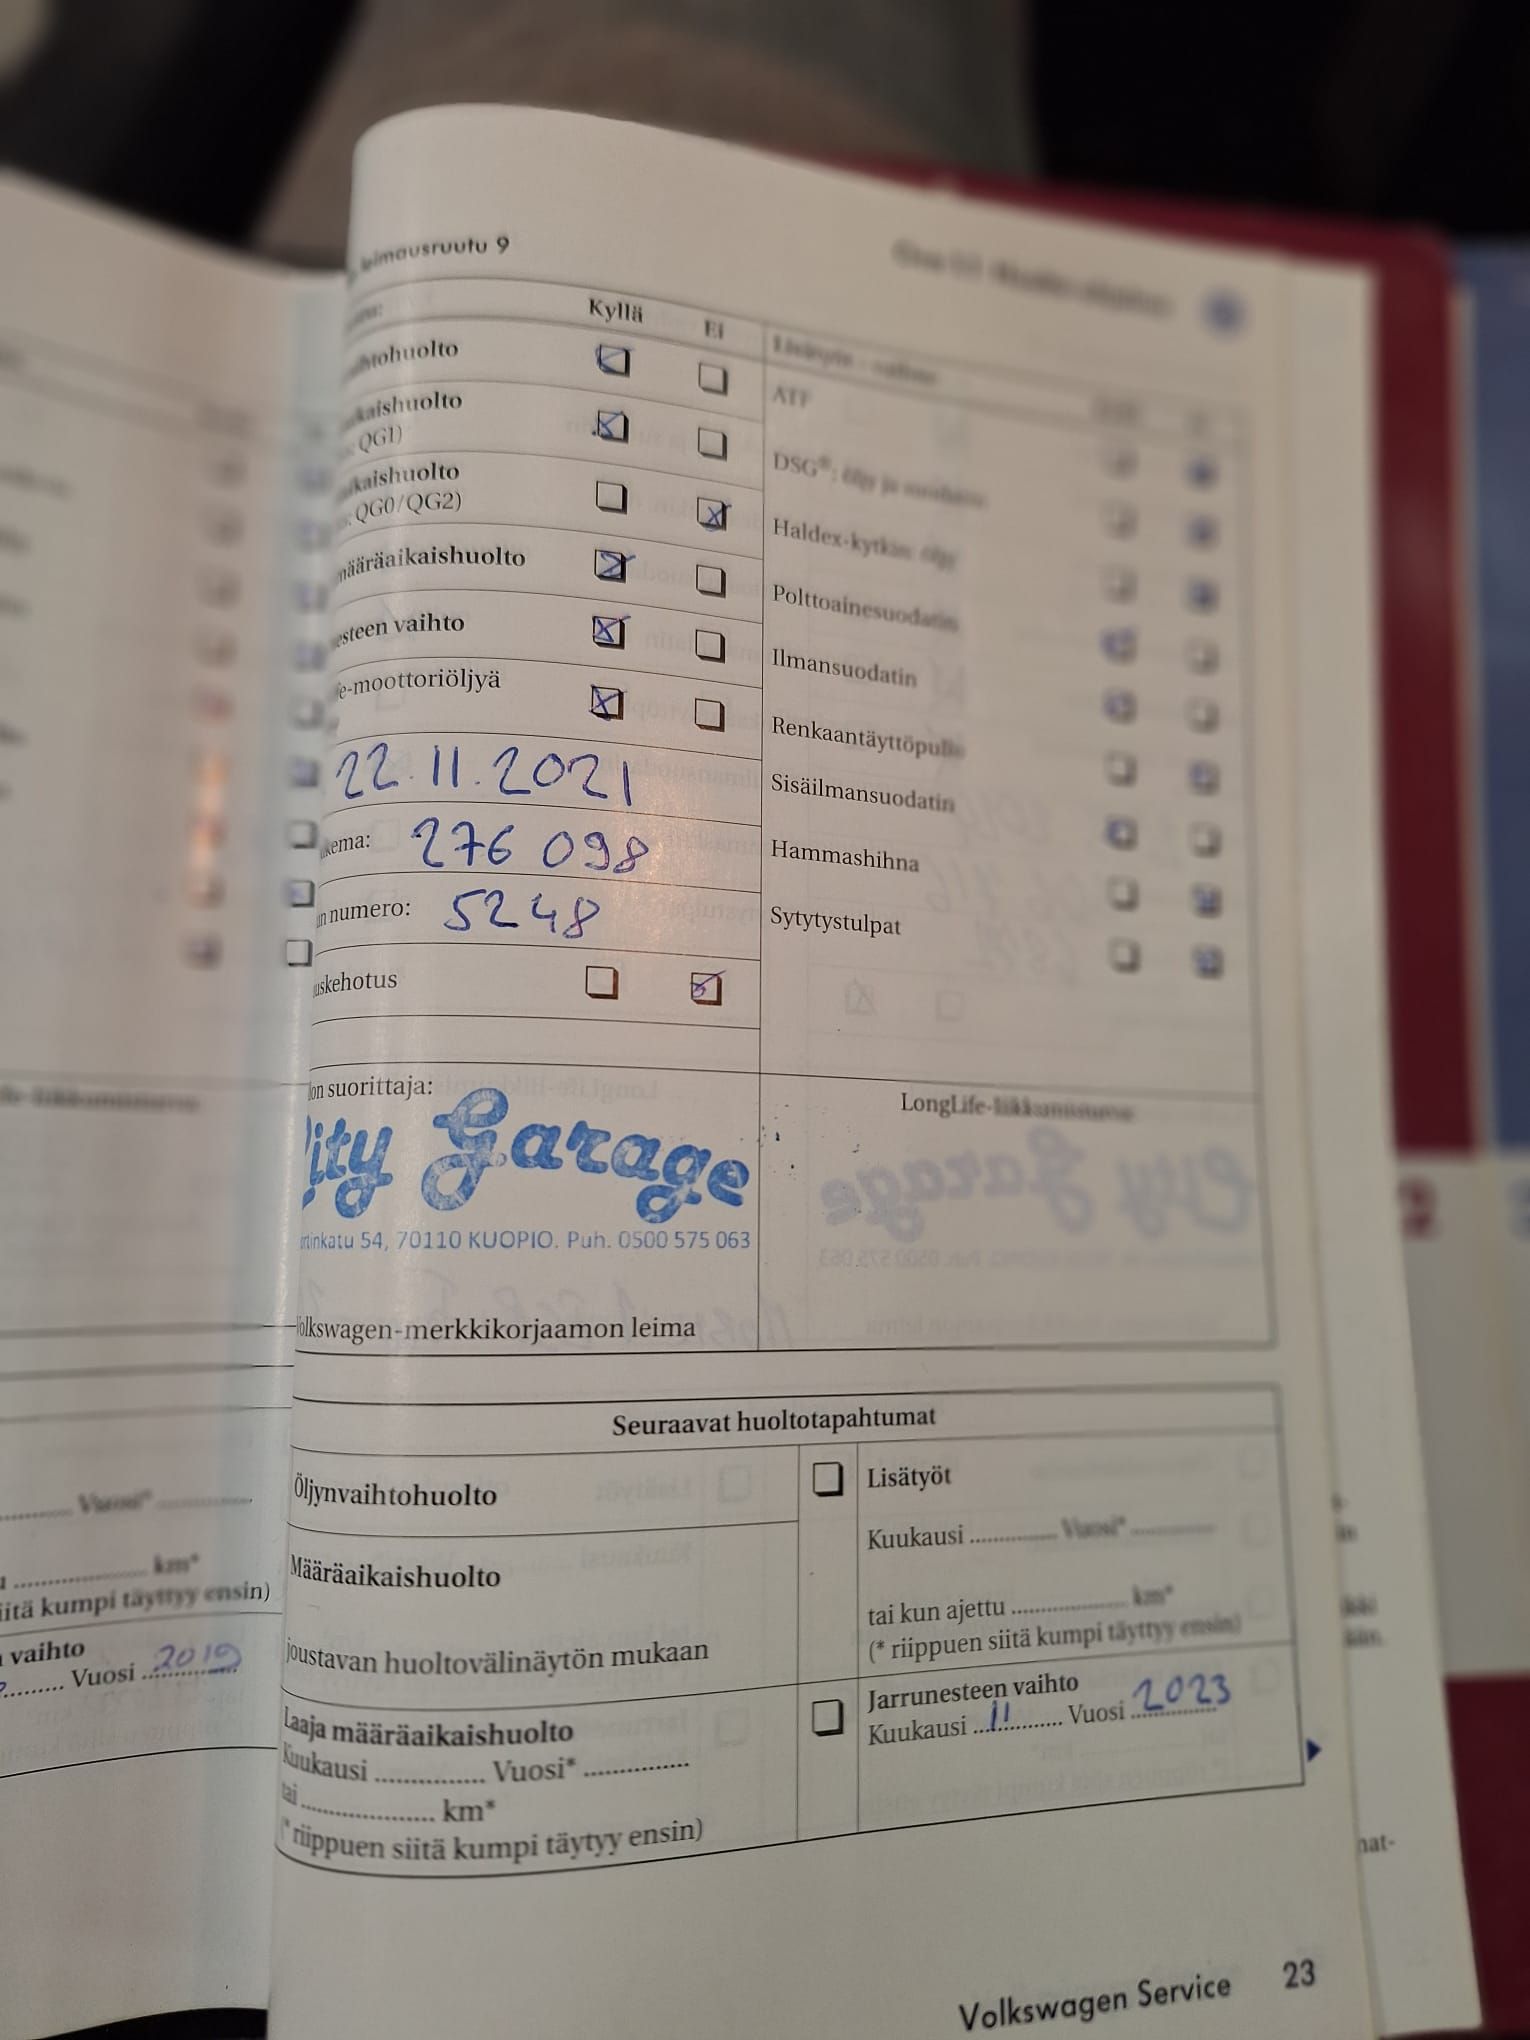 leimausruutu 9
Kyllä
Ei
htohuolto
kaishuolto
QG1)
kaishuolto
QG0/QG2)
määräaikaishuolto
esteen vaihto
e-moottoriöljyä
22.11.2021
kema: 276 098
n numero: 5248
uskehotus
ATF
DSG®: öljy ja suodatin
Haldex-kytkin: öljy
Polttoainesuodatin
Ilmansuodatin
Renkaantäyttöpullo
Sisäilmansuodatin
Hammashihna
Sytytystulpat
lon suorittaja:
City Garage
rtinkatu 54, 70110 KUOPIO. Puh. 0500 575 063
Volkswagen-merkkikorjaamon leima
LongLife-liikkumisturva
Seuraavat huoltotapahtumat
Öljynvaihtohuolto
Määräaikaishuolto
joustavan huoltovälinäytön mukaan
Laaja määräaikaishuolto
Kuukausi ............... Vuosi* ...............
tai .................... km*
(* riippuen siitä kumpi täytyy ensin)
Lisätyöt
Kuukausi ............... Vuosi* ...............
tai kun ajettu .................... km*
(* riippuen siitä kumpi täyttyy ensin)
Jarrunesteen vaihto
Kuukausi 11 Vuosi 2023
Vuosi* ...............
.................... km*
iitä kumpi täyttyy ensin)
vaihto
Vuosi 2019
Volkswagen Service 23